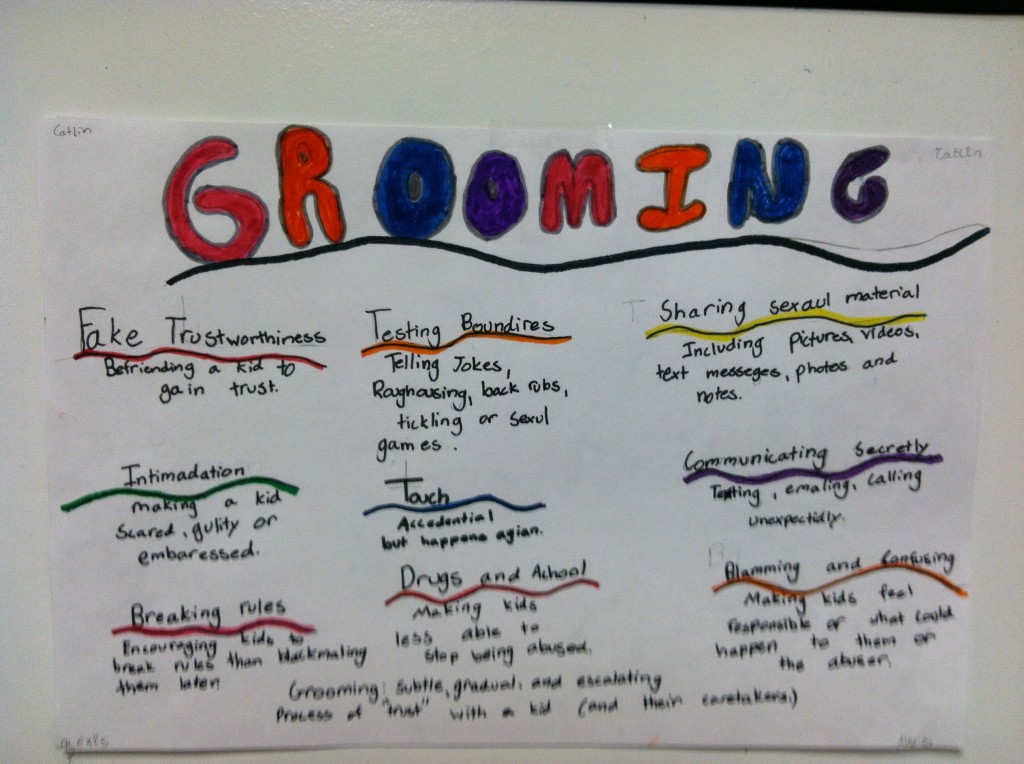 Catlin
Catlin
GROOMING
Fake Trustworthiness
Befriending a kid to
gain trust.
Testing Boundires
Telling Jokes,
Roughousing, back rubs,
tickling or sexul
games.
Sharing sexaul material
Including pictures, videos,
text messeges, photos and
notes.
Intimadation
making a kid
scared, gulity or
embaressed.
Touch
Accedential
but happens agian.
Communicating secretly
Texting, emaling, calling
unexpectidly.
Breaking rules
Encouraging kids to
break rules than blackmaling
them later.
Drugs and Achool
Making kids
less able to
stop being abused.
Blamming and Confusing
Making kids feel
responsible or what could
happen to them or
the abuser.
Grooming: subtle, gradual, and escalating
Process of "trust" with a kid (and their caretakers.)